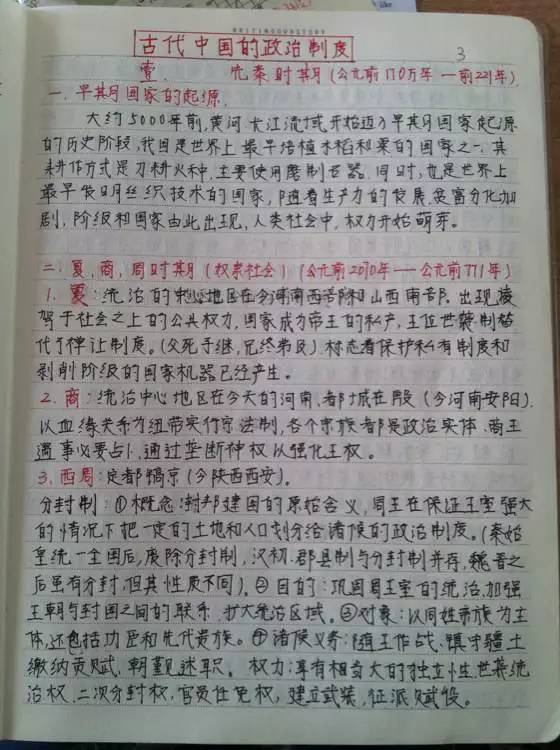 古代中国的政治制度
3
壹. 先秦时期(公元前170万年—前221年)
一.早期国家的起源.
大约5000年前,黄河长江流域开始迈入早期国家起源
的历史阶段,我国是世界上最早培植水稻和粟的国家之一.其
耕作方式是刀耕火种,主要使用磨制石器.同时,也是世界上
最早发明丝织技术的国家,随着生产力的发展,贫富分化加
剧,阶级和国家由此出现,人类社会中,权力开始萌芽。
二.夏,商,周时期(奴隶社会)(公元前2070年——公元前771年)
1.夏:统治的中心地区在今河南西部和山西南部.出现凌
驾于社会之上的公共权力,国家成为帝王的私产,王位世袭制替
代了禅让制度。(父死子继,兄终弟及).标志着保护私有制度和
剥削阶级的国家机器已经产生。
2.商:统治中心地区在今天的河南.都城在殷(今河南安阳).
以血缘关系为纽带实行宗法制,各个宗族都是政治实体.商王
遇事必要占卜,通过垄断神权以强化王权。
3.西周:定都镐京(今陕西西安)。
分封制:①概念:封邦建国的原始含义,周王在保证王室强大
的情况下把一定的土地和人口划分给诸侯的政治制度。(秦始
皇统一全国后,废除分封制,汉初.郡县制与分封制并存,魏晋之
后虽有分封,但其性质不同).②目的:巩固周王室的统治,加强
王朝与封国之间的联系.扩大统治区域。③对象:以同姓亲族为主
体,还包括功臣和先代贵族。④诸侯义务:随王作战.镇守疆土
缴纳贡赋,朝觐述职。权力:享有相当大的独立性.世袭统
治权.二次分封权,官员任免权,建立武装,征派赋役。